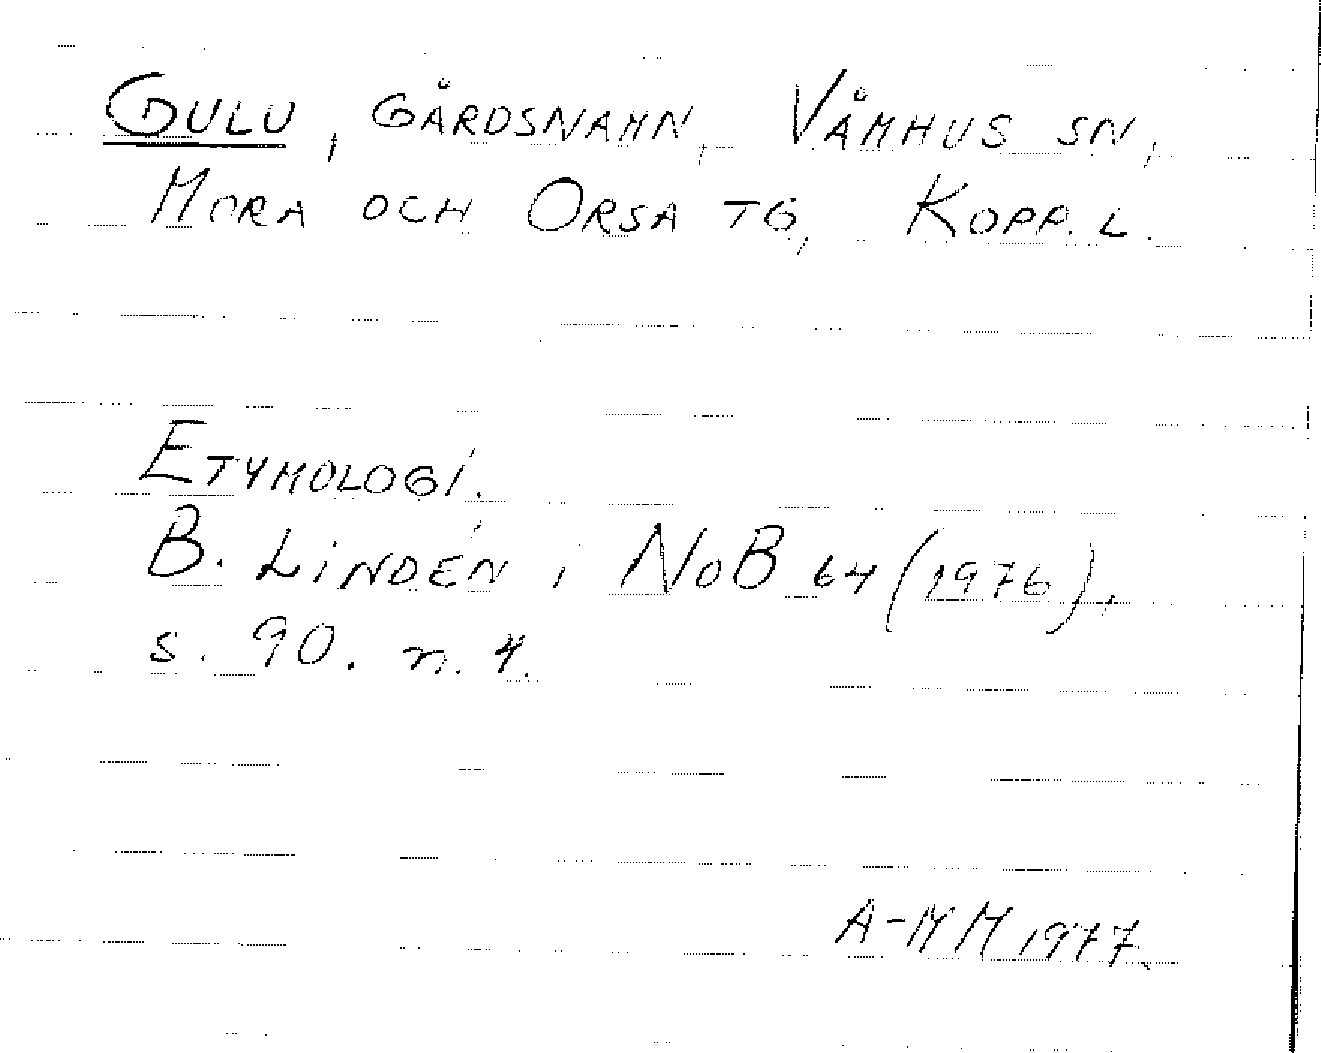 GULU, GÅRDSNAMN, VÅMHUS SN,
MORA OCH ORSA TG, KOPP. L.
ETYMOLOGI.
B. LINDÉN, NoB 64 (1976),
s. 90. n. 4.
A-MM 1977.